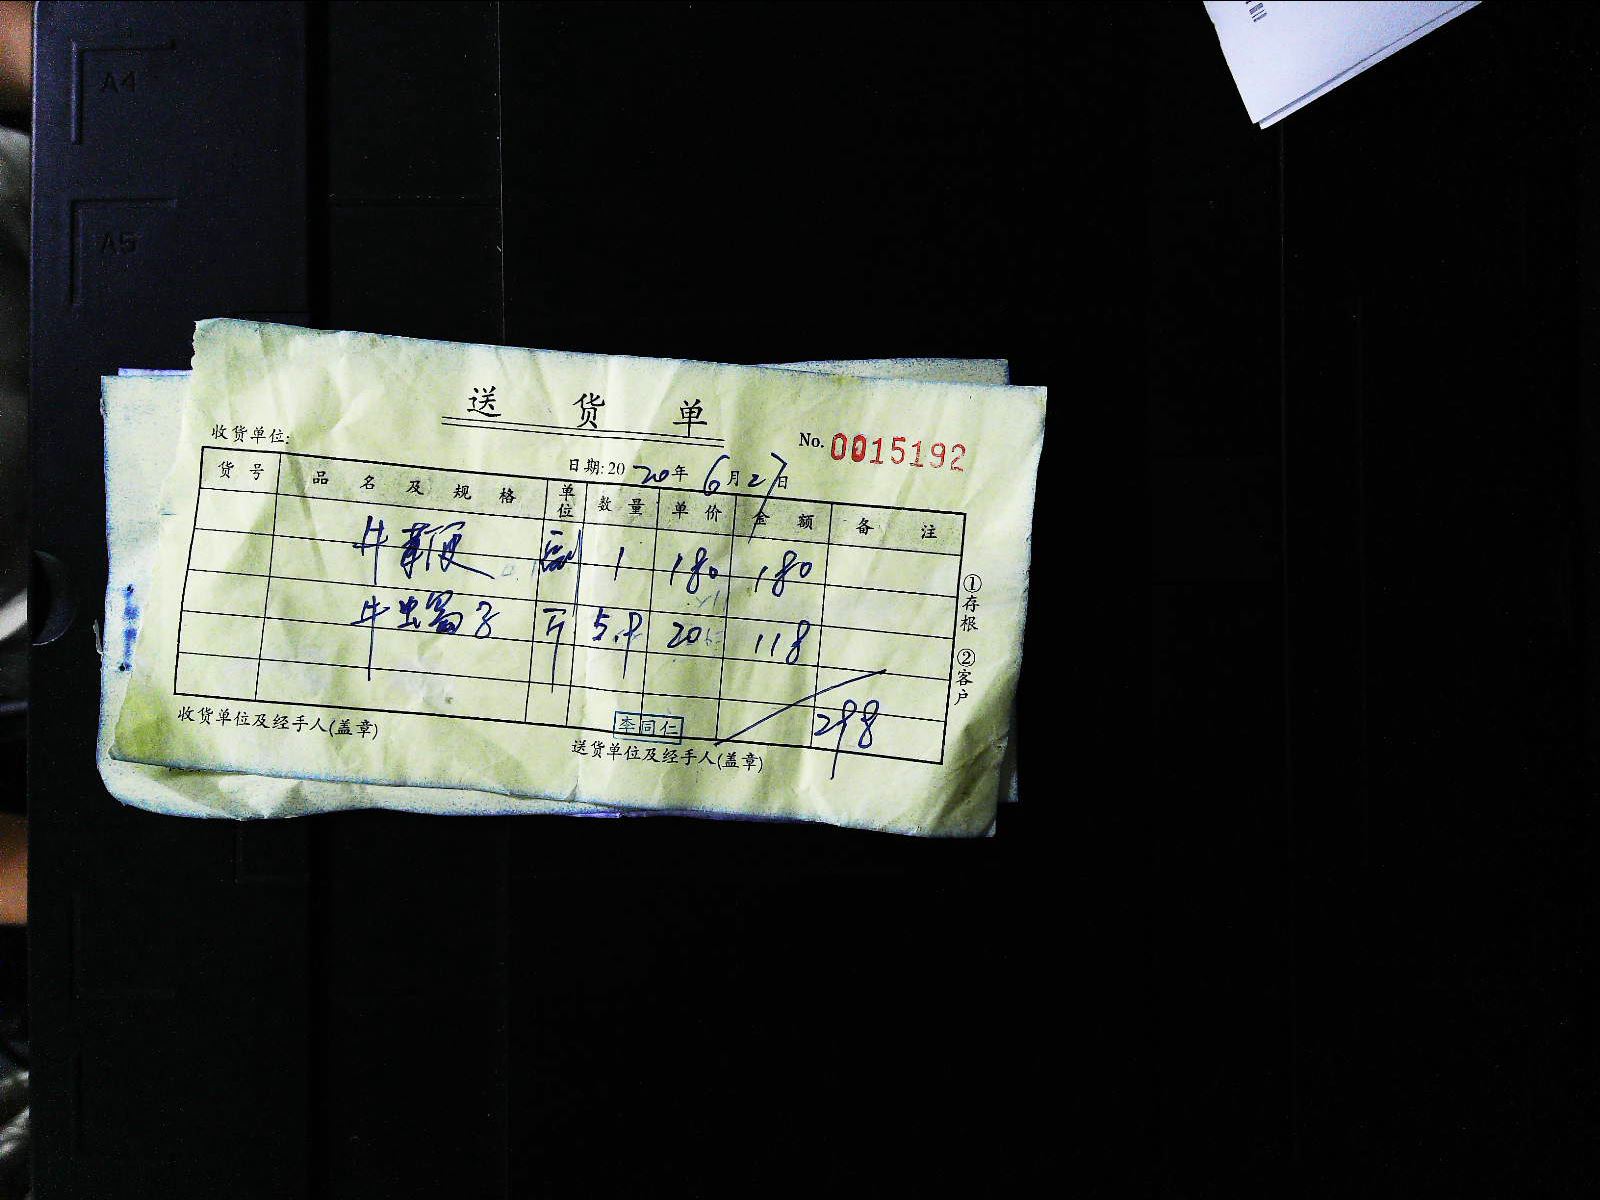 A4
A5
送货单
收货单位:
No. 0015192
日期:2020年6月27日
货号 品名及规格 单位 数量 单价 金额 备注
牛鞭 副 1 180 180
牛 子 斤 5.9 20 118
298
①存根 ②客户
李同仁
收货单位及经手人(盖章) 送货单位及经手人(盖章)